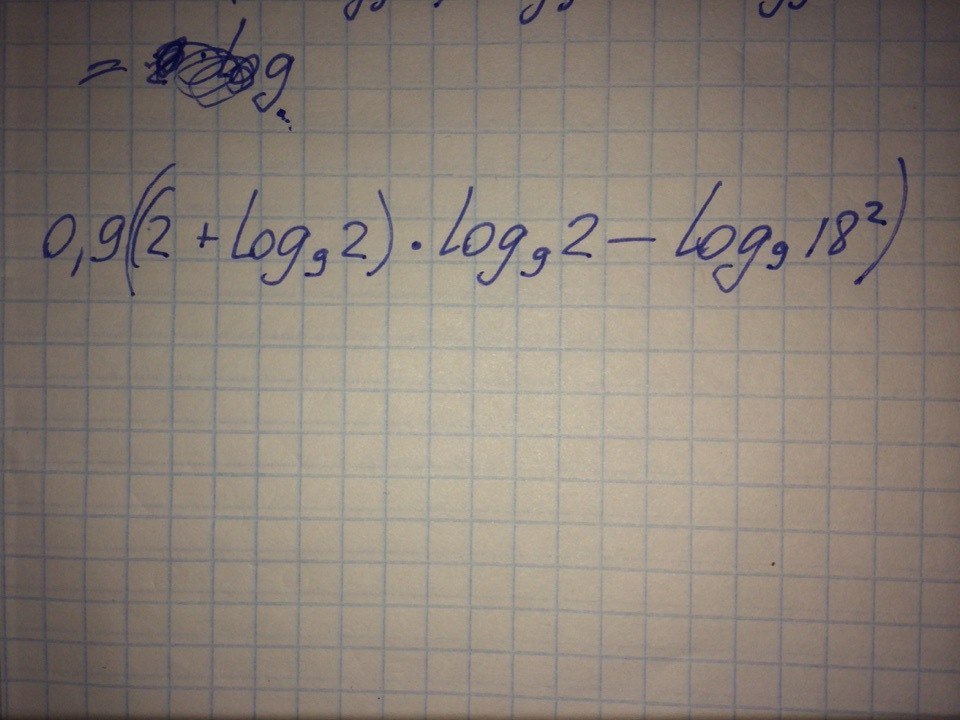 = log
0,9((2 + log₉2) · log₉2 — log₉18²)